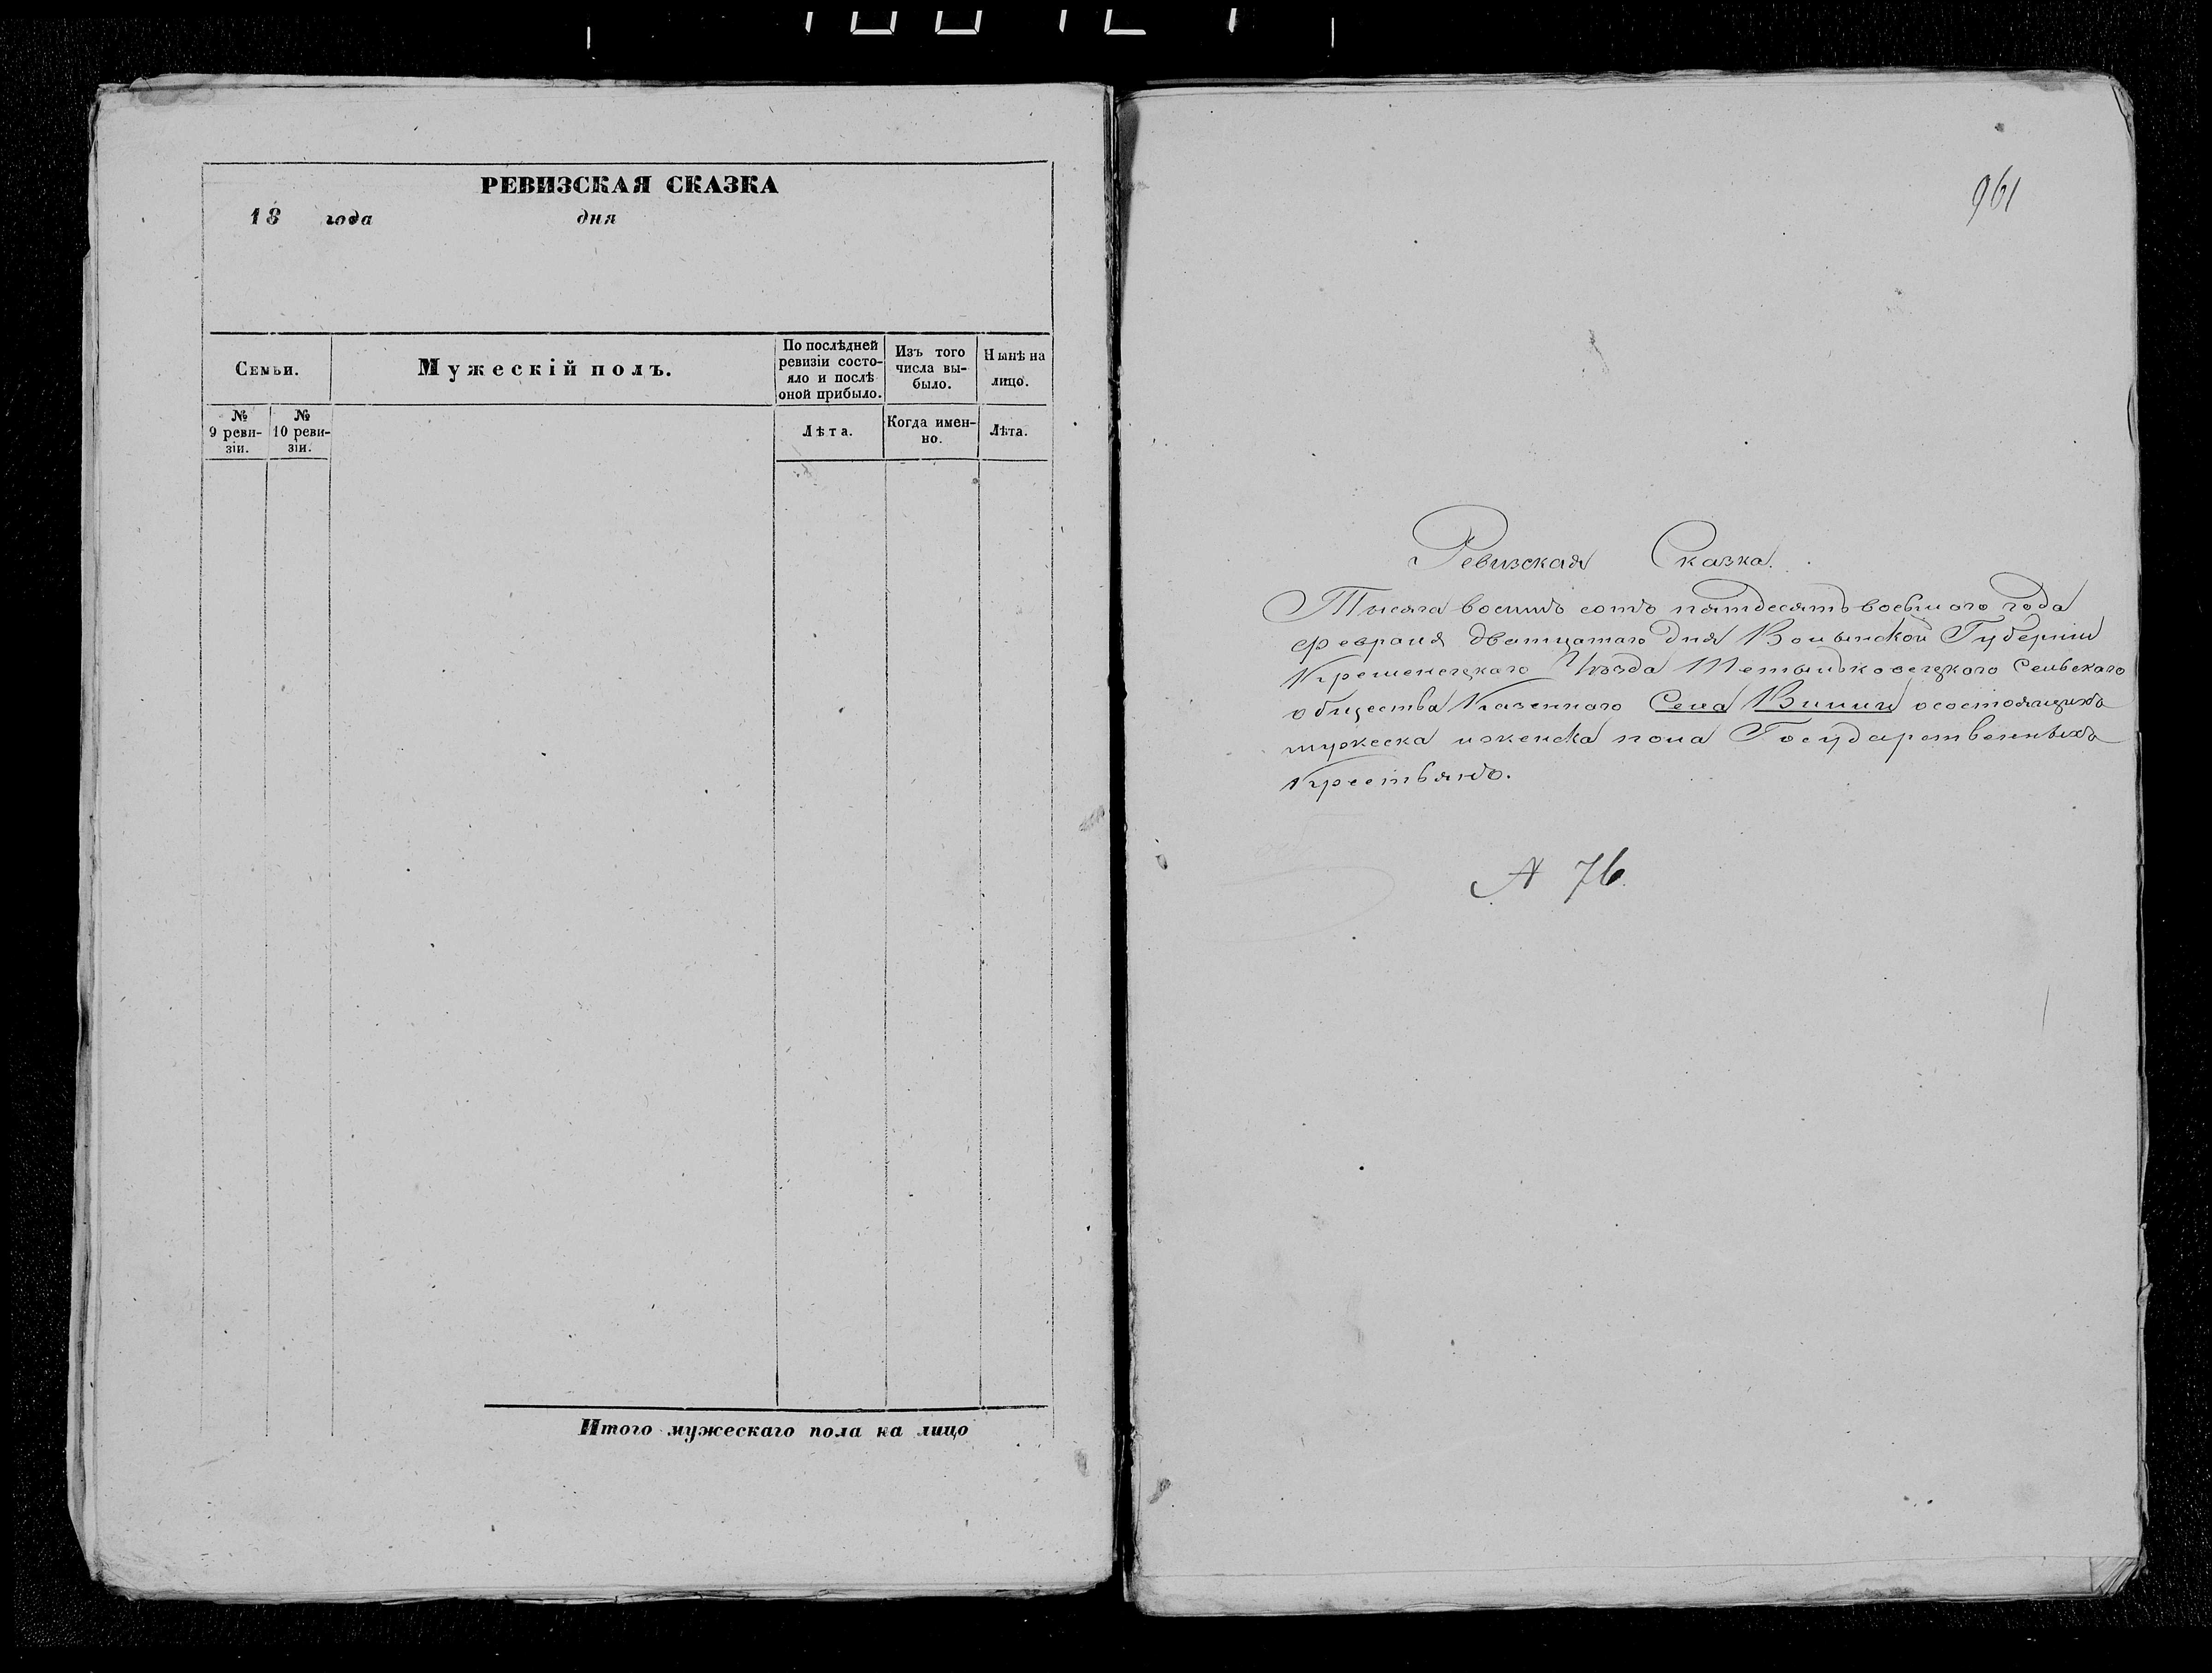 РЕВИЗСКАЯ СКАЗКА
18 года дня
Семьи.
Мужескій полъ.
По послѣдней ревизіи состо-
яло и послѣ
оной прибыло.
Изъ того
числа вы-
было.
Нынѣ на
лицо.
№
9 реви-
зіи.
№
10 реви-
зіи.
Лѣта.
Когда имен-
но.
Лѣта.
Итого мужескаго пола на лицо
961
Ревизская Сказка.
Тысяча восимъ сотъ пятдесятъ восьмого года
февраля дватцатаго дня Волынской Губерніи
Кременецкаго Уѣзда Тетыльковецкаго Сельскаго
общества Казеннаго Села Вилии осостоящихъ
мужеска иженска пола Государственныхъ
Крестьянъ.
№ 76.